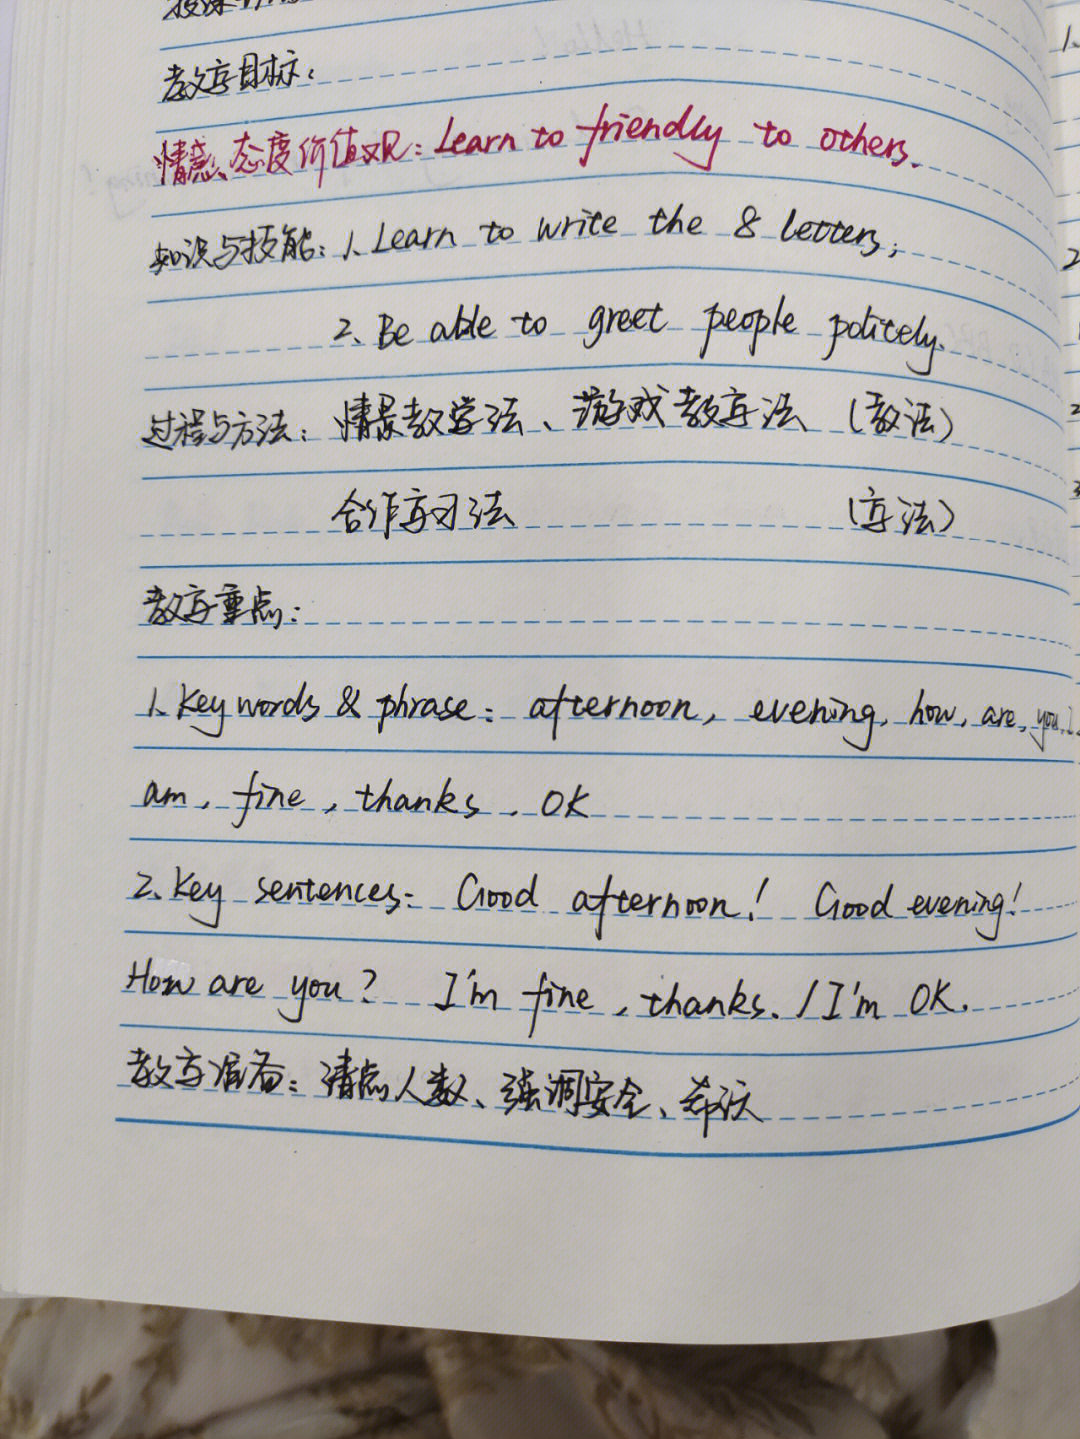 教学目标：
情感、态度价值观：Learn to friendly to others.
知识与技能：1. Learn to write the 8 letters;
2. Be able to greet people politely.
过程与方法：情景教学法、游戏教学法 （教法）
合作学习法 （学法）
教学重点：
1. Key words & phrase: afternoon, evening, how, are, you, I
am, fine, thanks, OK
2. Key sentences: Good afternoon! Good evening!
How are you? I'm fine, thanks. / I'm OK.
教学准备：清点人数、强调安全、